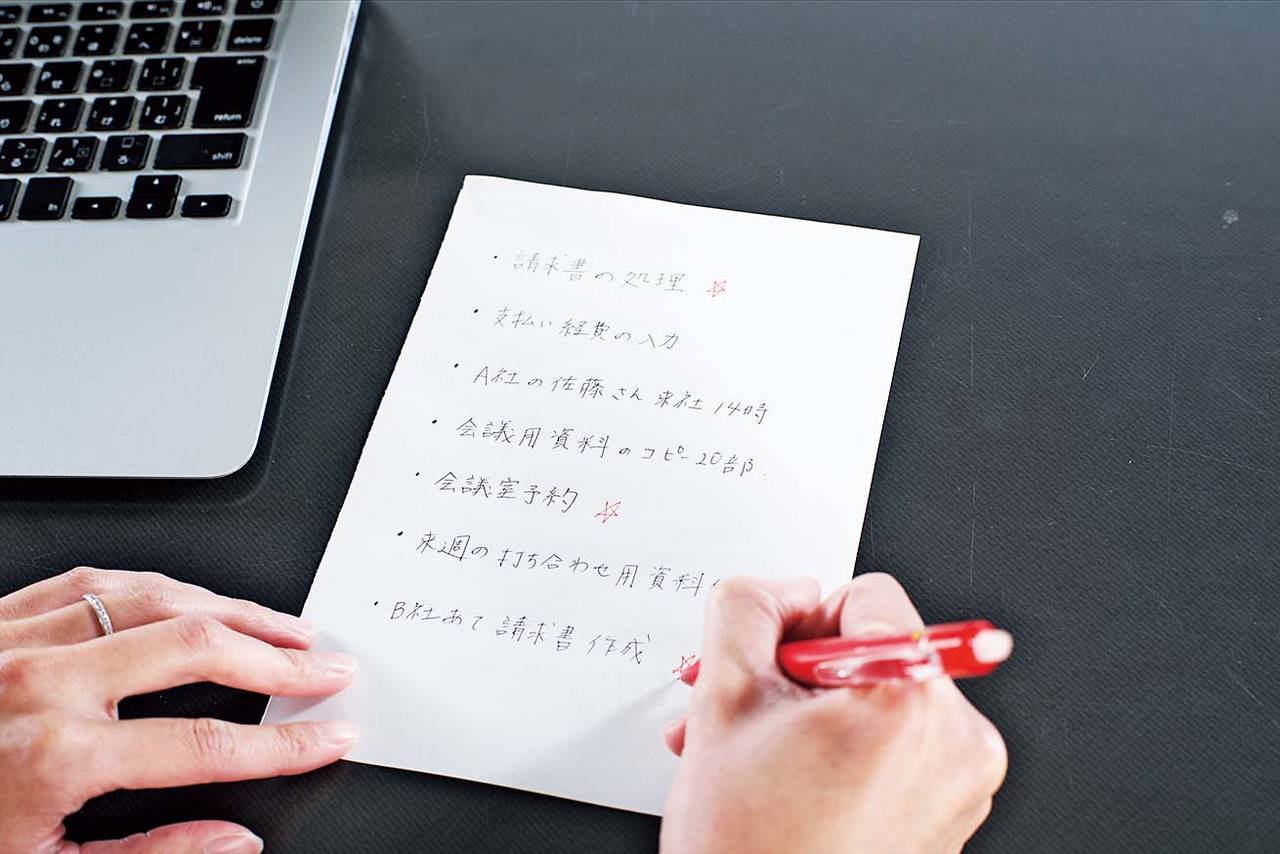 delete
enter
return
shift
・請求書の処理 ☆
・支払い経費の入力
・A社の佐藤さん来社 14時
・会議用資料のコピー20部.
・会議室予約 ☆
・来週の打ち合わせ用資料
・B社あて請求書作成 ☆